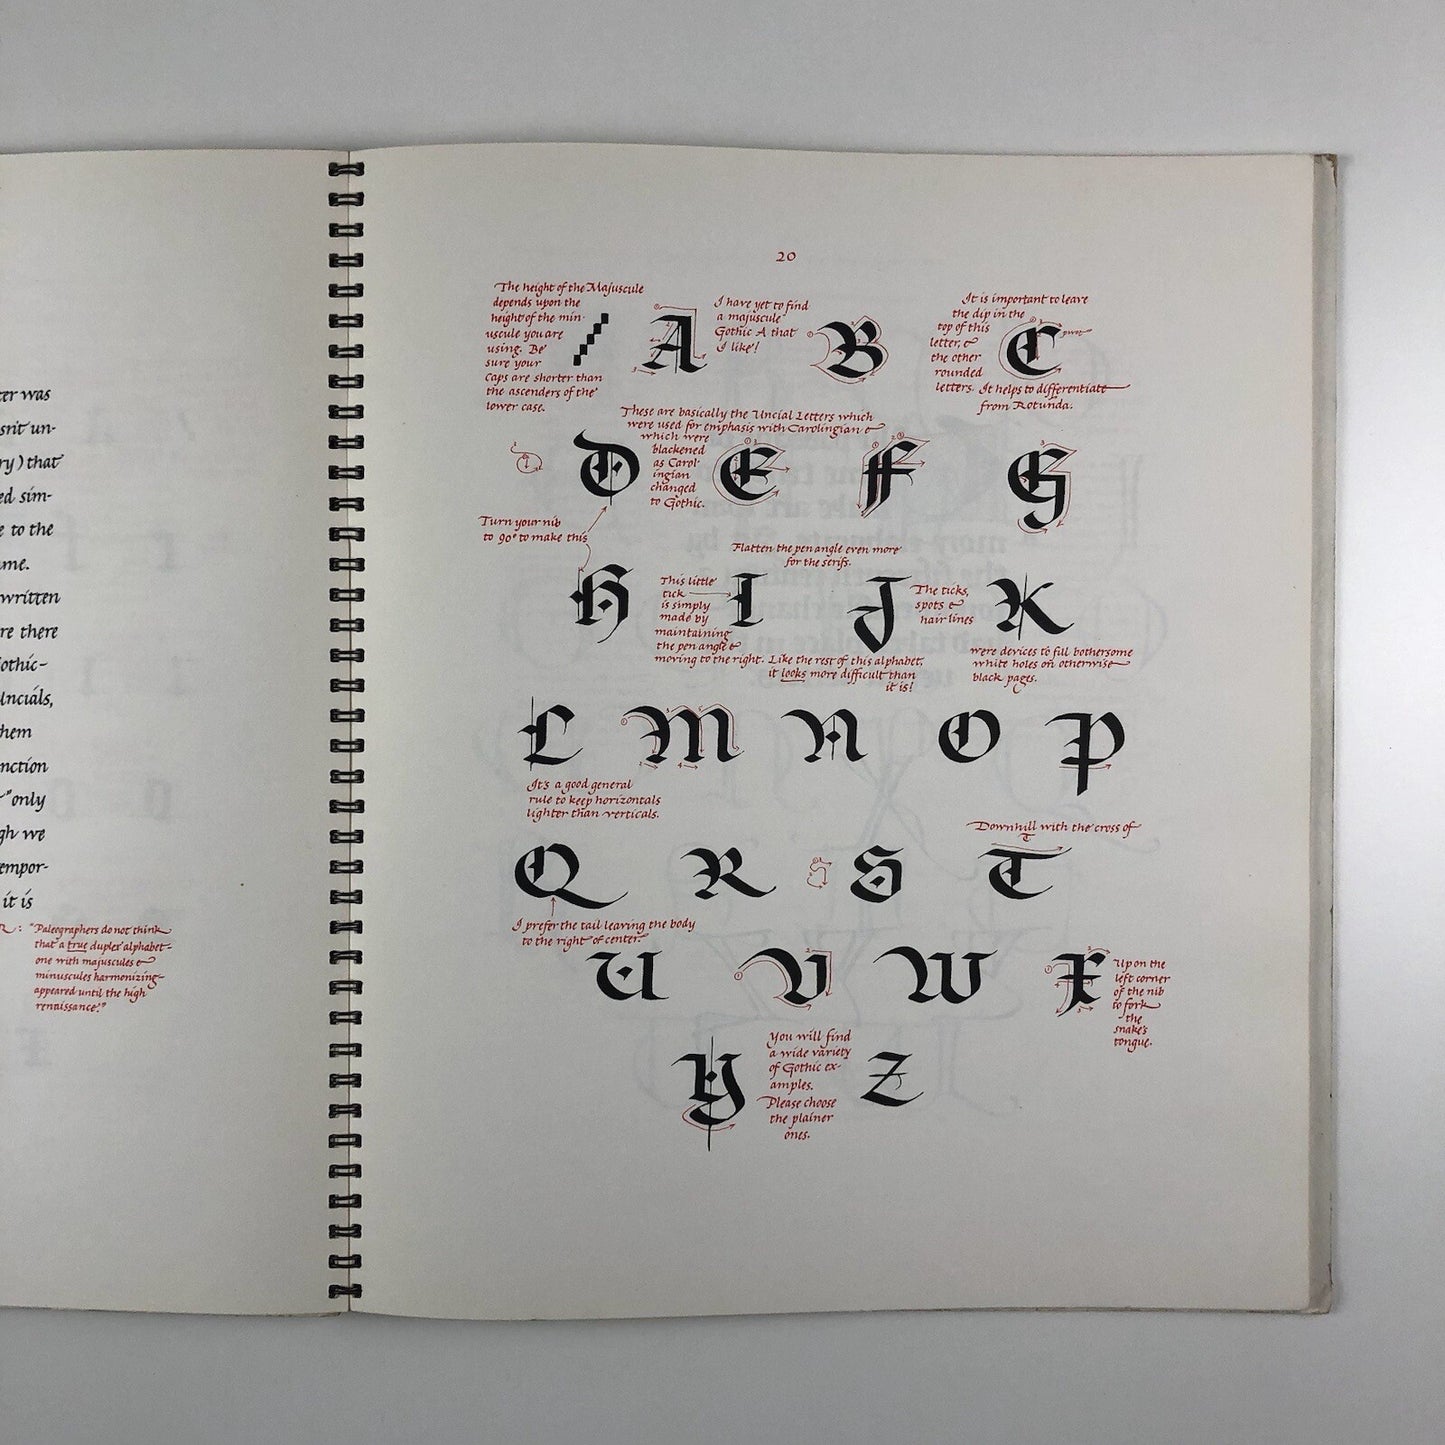 ter was
isn't un-
ry) that
ed sim-
e to the
ame.
written
re there
othic-
Uncials,
hem
nction
"only
gh we
tempor-
it is
R: "Paleographers do not think
that a true duplex alphabet-
one with majuscules &
minuscules harmonizing-
appeared until the high
renaissance."
20
The height of the Majuscule
depends upon the
height of the min-
uscule you are
using. Be
sure your
caps are shorter than
the ascenders of the
lower case.
A
I have yet to find
a majuscule
Gothic A that
I like!
B
It is important to leave
the dip in the
top of this
letter, &
the other
rounded
letters. It helps to differentiate
from Rotunda.
C
These are basically the Uncial Letters which
were used for emphasis with Carolingian &
which were
blackened
as Carol-
ingian
changed
to Gothic.
D E F G
Turn your nib
to 90° to make this
Flatten the pen angle even more
for the serifs.
H
This little
tick
is simply
made by
maintaining
the pen angle &
moving to the right. Like the rest of this alphabet,
it looks more difficult than
it is!
I J
The ticks,
spots &
hair lines
were devices to fill bothersome
white holes on otherwise
black pages.
K
L M N O P
It's a good general
rule to keep horizontals
lighter than verticals.
Downhill with the cross of
T
Q R S T
I prefer the tail leaving the body
to the right of center.
U V W X
Up on the
left corner
of the nib
to fork
the
snake's
tongue.
Y
You will find
a wide variety
of Gothic ex-
amples.
Please choose
the plainer
ones.
Z